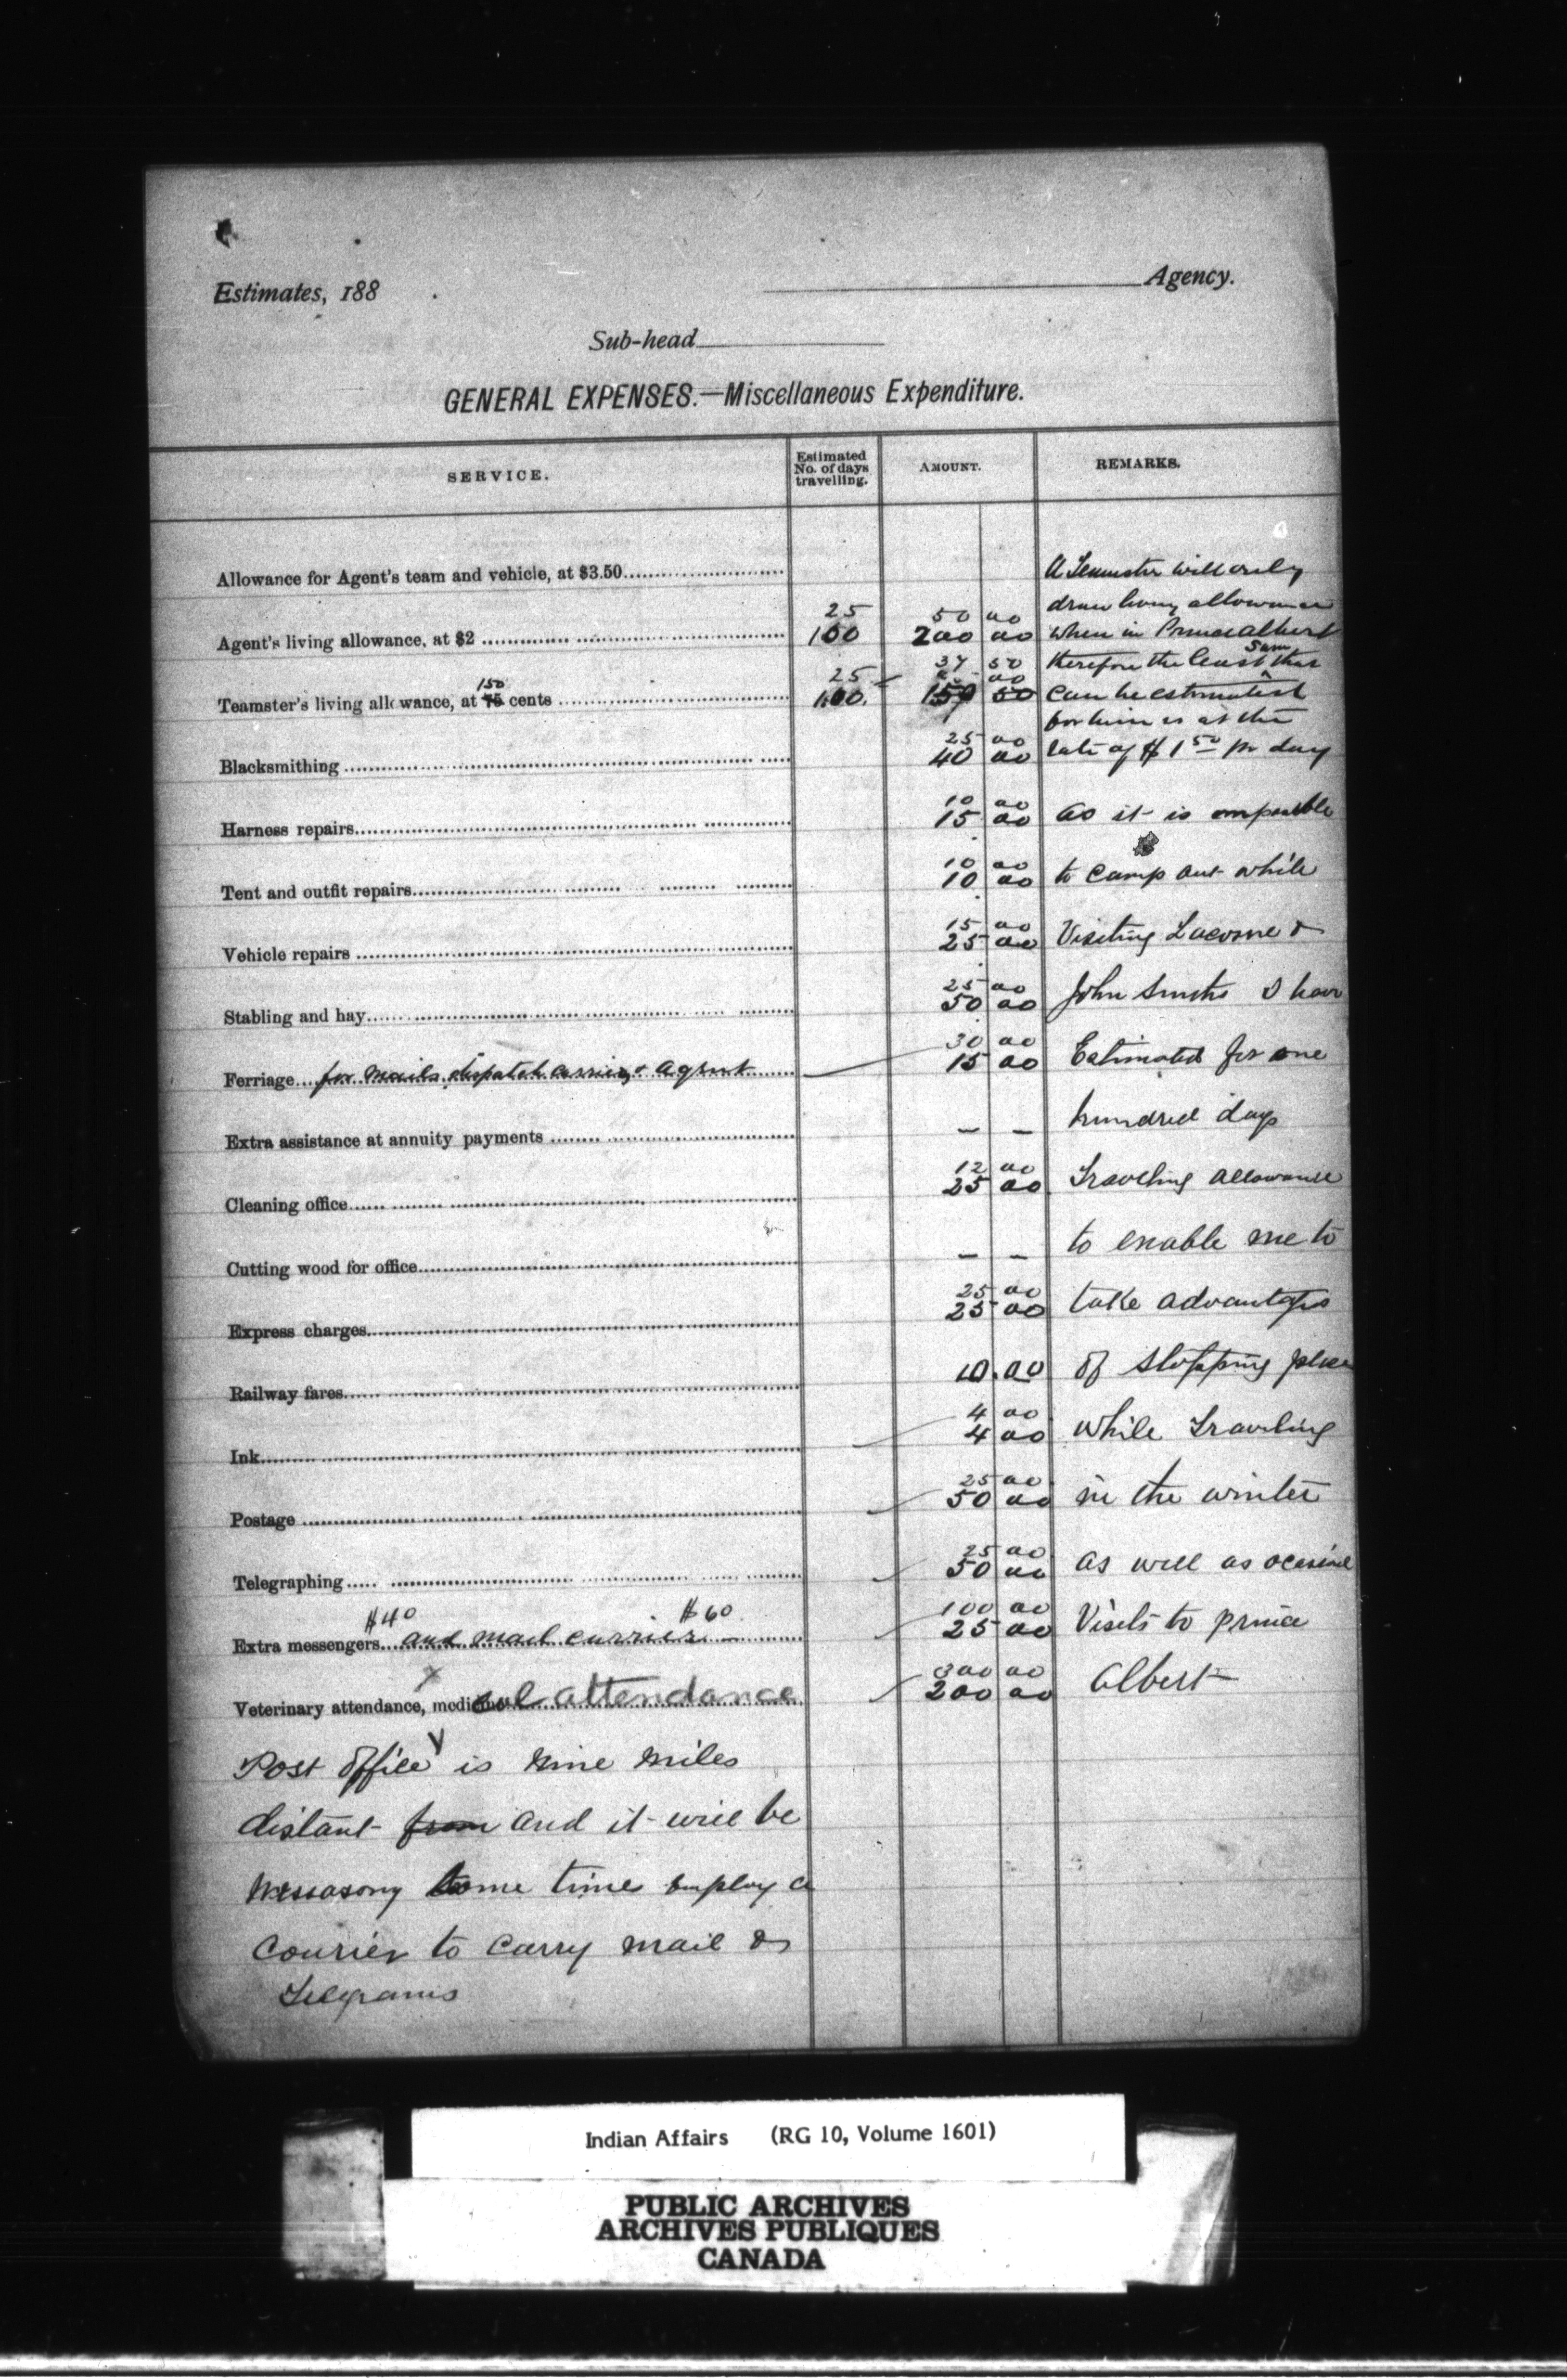 Estimates, 188 Agency.
Sub-head
GENERAL EXPENSES.—Miscellaneous Expenditure.
SERVICE. Estimated No. of days travelling. AMOUNT. REMARKS.
Allowance for Agent's team and vehicle, at $3.50 A Teamster will only
draw living allowance
25 50 00
Agent's living allowance, at $2 100 200 00 when in Prince Albert
37 50 therefore the least sum that
150 25
Teamster's living allowance, at 75 cents 100. 150 50 can be estimated
for him is at the
25 00
Blacksmithing 40 00 rate of $1 50 pr day
10 00
Harness repairs 15 00 as it is impossible
10 00
Tent and outfit repairs 10 00 to camp out while
15 00
Vehicle repairs 25 00 Visiting &
25 00
Stabling and hay 50 00 John Smiths I have
30 00
Ferriage for mails, dispatch carrier & agent 15 00 Estimated for one
Extra assistance at annuity payments — — hundred days
12 00
Cleaning office 25 00 Traveling allowance
Cutting wood for office — — to enable me to
25 00
Express charges 25 00 take advantages
Railway fares 10.00 of stopping place
4 00
Ink 4 00 while Traveling
25 00
Postage 50 00 in the winter
25 00
Telegraphing 50 00 as well as ocasinal
$40 $60 100 00
Extra messengers and mail currier 25 00 Visits to prince
300 00
Veterinary attendance, medical attendance 200 00 Albert
Post Office is nine miles
distant from and it will be
nessasory some times employ a
Courier to carry mail &
Telegrams
Indian Affairs (RG 10, Volume 1601)
PUBLIC ARCHIVES
ARCHIVES PUBLIQUES
CANADA